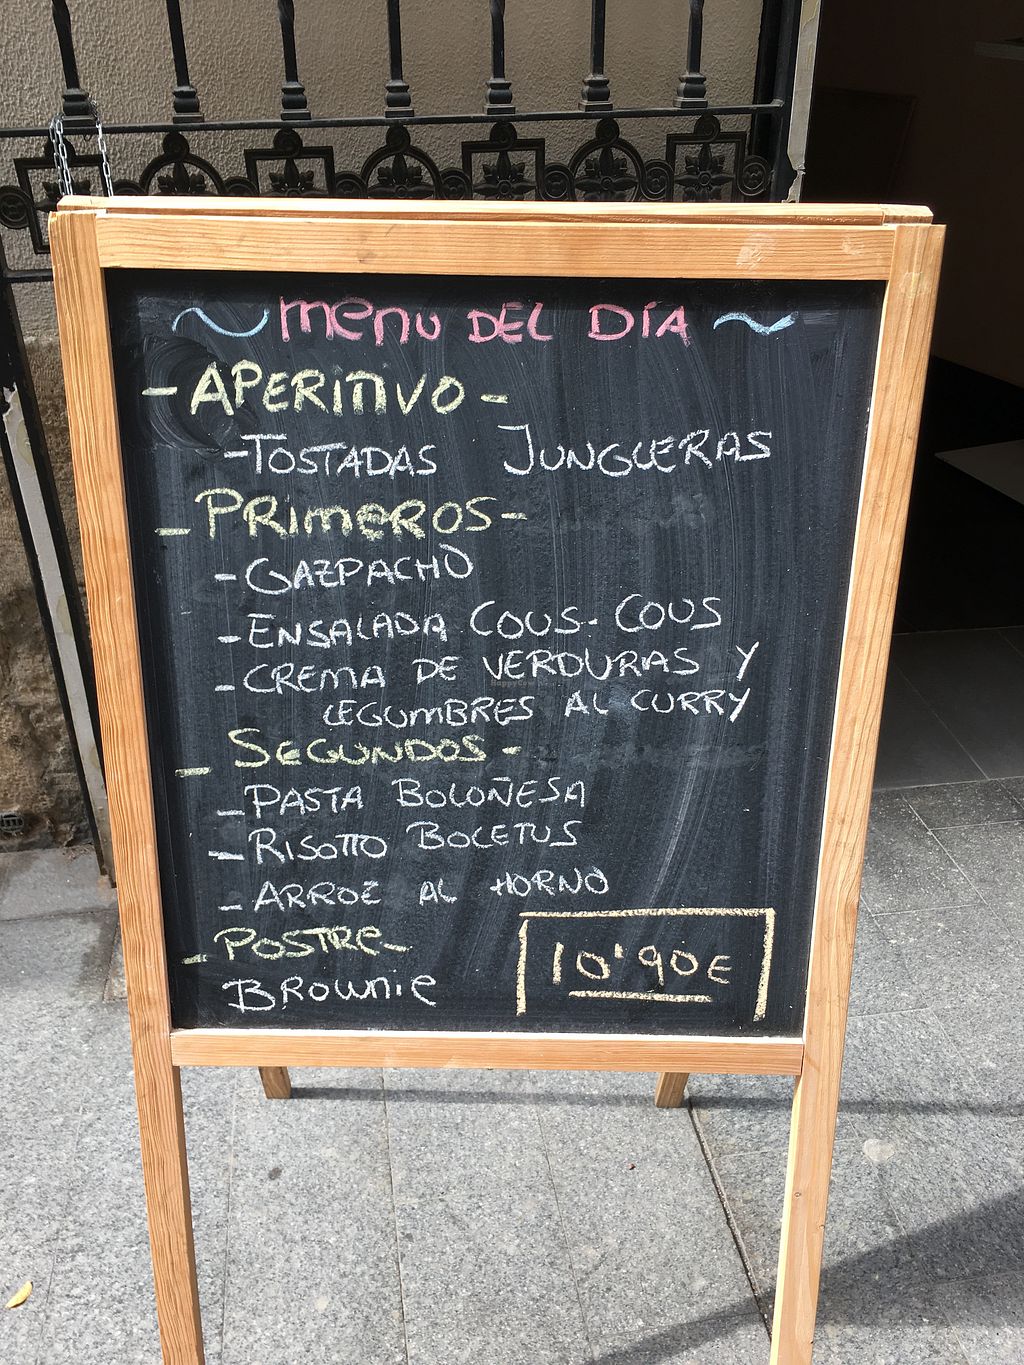 ~ MENU DEL DÍA ~
- APERITIVO -
- TOSTADAS JUNGLERAS
- PRIMEROS -
- GAZPACHO
- ENSALADA COUS-COUS
- CREMA DE VERDURAS Y
LEGUMBRES AL CURRY
- SEGUNDOS -
- PASTA BOLOÑESA
- RISOTTO BOLETUS
- ARROZ AL HORNO
- POSTRE -
BROWNIE
10'90€